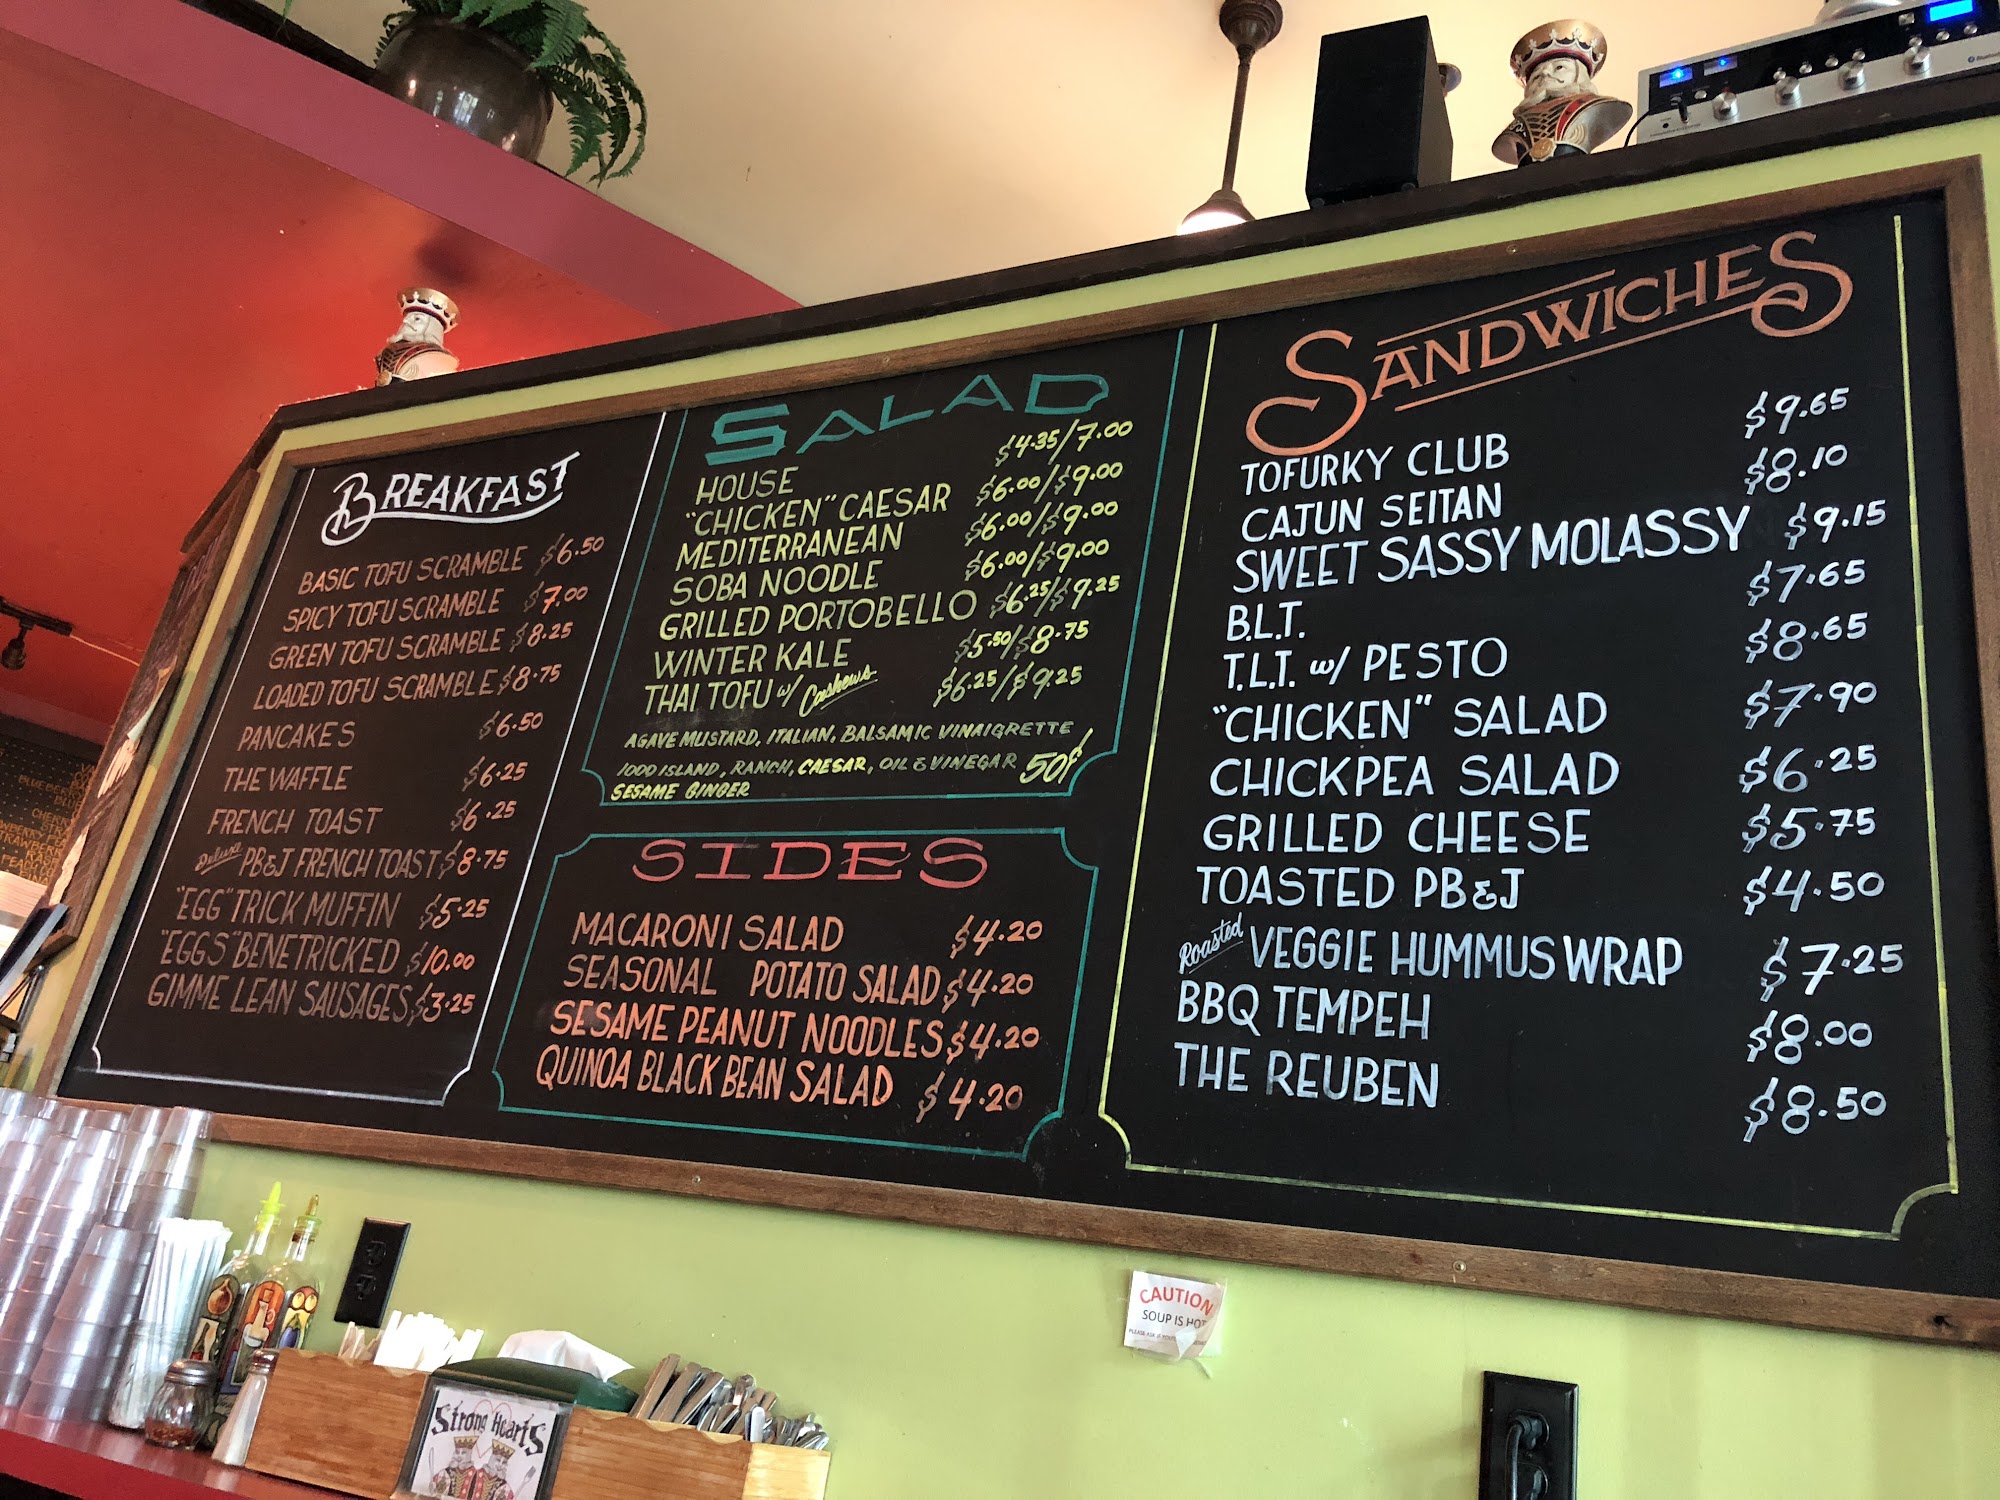 BREAKFAST
BASIC TOFU SCRAMBLE $6.50
SPICY TOFU SCRAMBLE $7.00
GREEN TOFU SCRAMBLE $8.25
LOADED TOFU SCRAMBLE $8.75
PANCAKES $6.50
THE WAFFLE $6.25
FRENCH TOAST $6.25
Deluxe PB&J FRENCH TOAST $8.75
"EGG" TRICK MUFFIN $5.25
"EGGS" BENETRICKED $10.00
GIMME LEAN SAUSAGES $3.25
SALAD
HOUSE $4.35/7.00
"CHICKEN" CAESAR $6.00/$9.00
MEDITERRANEAN $6.00/$9.00
SOBA NOODLE $6.00/$9.00
GRILLED PORTOBELLO $6.25/$9.25
WINTER KALE $5.50/$8.75
THAI TOFU w/ Cashews $6.25/$9.25
AGAVE MUSTARD, ITALIAN, BALSAMIC VINAIGRETTE
1000 ISLAND, RANCH, CAESAR, OIL & VINEGAR 50¢
SESAME GINGER
SIDES
MACARONI SALAD $4.20
SEASONAL POTATO SALAD $4.20
SESAME PEANUT NOODLES $4.20
QUINOA BLACK BEAN SALAD $4.20
SANDWICHES
TOFURKY CLUB $9.65
CAJUN SEITAN $8.10
SWEET SASSY MOLASSY $9.15
B.L.T. $7.65
T.L.T. w/ PESTO $8.65
"CHICKEN" SALAD $7.90
CHICKPEA SALAD $6.25
GRILLED CHEESE $5.75
TOASTED PB&J $4.50
Roasted VEGGIE HUMMUS WRAP $7.25
BBQ TEMPEH $8.00
THE REUBEN $8.50
CAUTION
SOUP IS HOT
PLEASE ASK
Strong Hearts